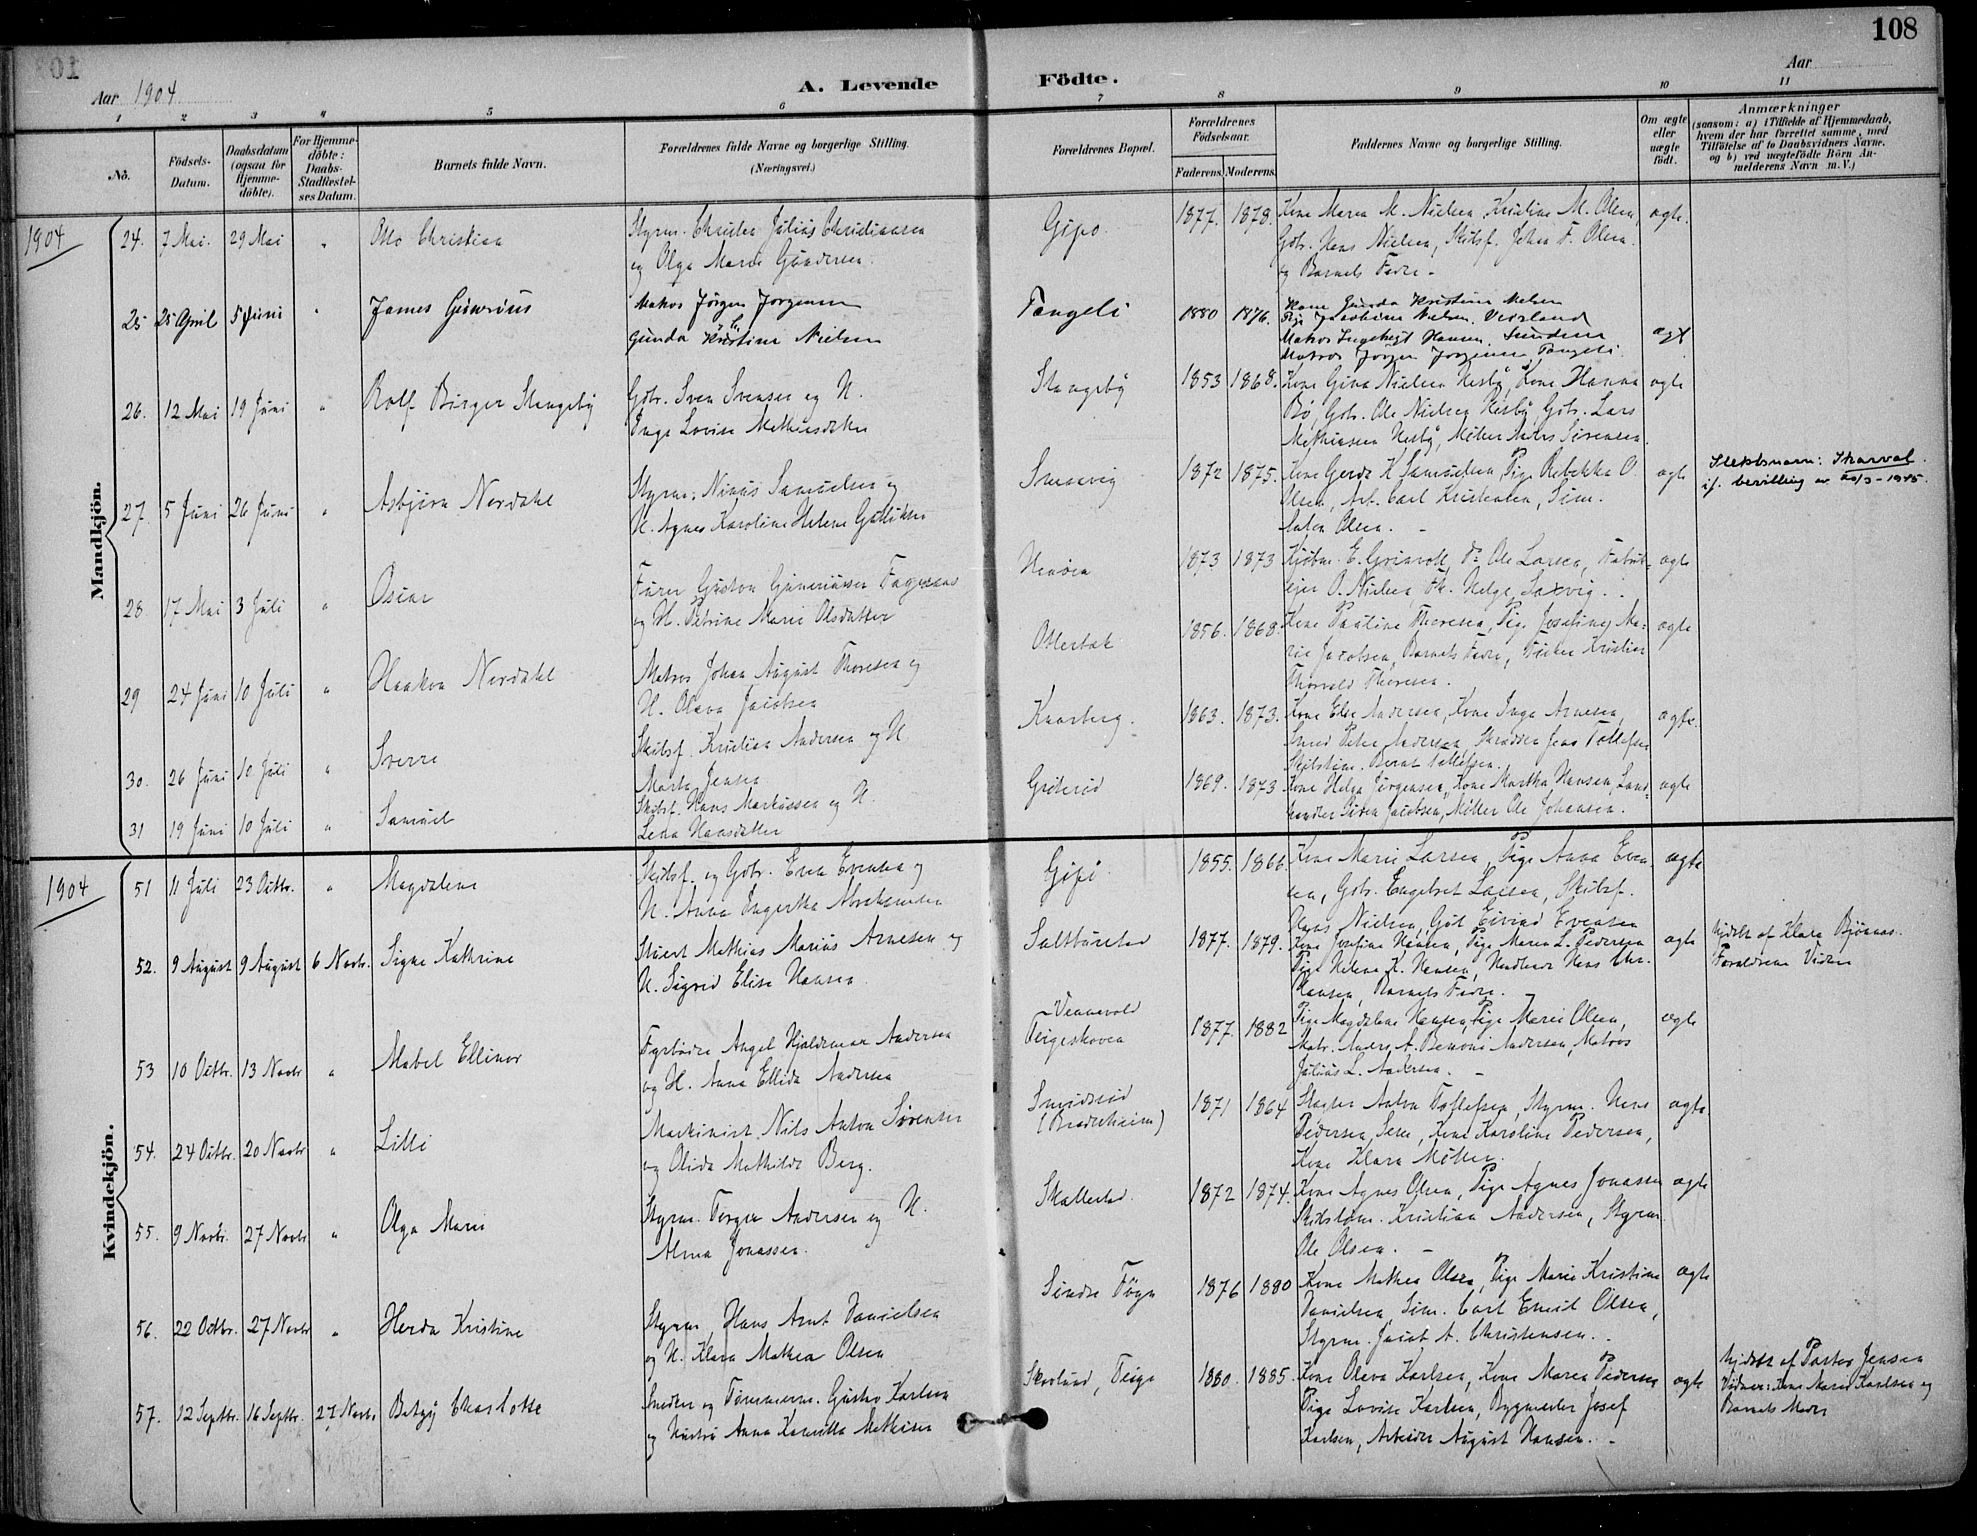 108
Aar 1904
A. Levende Födte.
Aar
1 2 3 4 5 6 7 8 9 10 11
No.
Födsels-Datum.
Daabsdatum (ogsaa for Hjemme-döbte).
For Hjemme-döbte: Daabs-Stadfæstel-ses Datum.
Barnets fulde Navn.
Forældrenes fulde Navne og borgerlige Stilling. (Næringsvei.)
Forældrenes Bopæl.
Forældrenes Födselsaar.
Faderens. Moderens.
Faddernes Navne og borgerlige Stilling.
Om ægte eller uægte födt.
Anmærkninger (saasom: a) i Tilfælde af Hjemmedaab, hvem der har forrettet samme, med Tilföielse af to Daabsvidners Navne, og b) ved uægtefödte Börn An-melderens Navn m. V.)
Mandkjön.
1904
24. 7 Mai. 29 Mai " Otto Christian
Styrm. Julius Christiansen
og Olga Marie Gundersen.
Gipø. 1877. 1878.
Kone Maren M. Nielsen, Kristine M. Olsen,
Gbr. Hans Nielsen, Skibsf. Johan F. Olsen.
og Barnets Fader. –
ægte.
25 25 April 5 Juni " James
Matros Jørgen Jørgensen
Gunda Kristine Nielsen
Tangeli 1880 1876.
Kone Gunda Kristine Nielsen
Pige Jacobine Nielsen. Veirland
Matros Hansen. Sundene
Matros Jørgen Jørgensen, Tangeli.
ægt
26. 12 Mai 19 Juni " Rolf Birger Stangeby
Gbr. Sven Svensen og H.
Inga Lovise Mathisdatter
Stangeby 1853 1868.
Kone Gina Nielsen Nesby, Kone Hanna
Bø, Gbr. Ole Nielsen Nesby, Gbr. Lars
Mathiassen Nesby, Møller Anders Sørensen.
ægte
27. 5 Juni 26 Juni " Asbjørn Nordahl
Styrm. Samuelsen og
H. Agnes Karoline Helene Gulliksen
1872 1875.
Kone Gerda K. Samuelsen, Pige Rebekka O.
Olsen, Arb. Carl Kristensen, Tøm.
Anton Olsen. –
ægte
Slektsnavn: Skarval.
if. bevilling av 20/3–1945.
28 17 Mai 3 Juli " Oscar
Gustav Fagernæs
og H. Petrine Marie Olsdatter
1873 1873
E. Grimvold, Ole Larsen,
O. Nielsen, Helga Saxvig.
ægte
29 24 Juni 10 Juli " Haakon Nordahl
Matros Johan August Thoresen og
H. Olava Jacobsen
Otterbæk 1856. 1868.
Kone Pauline Thoresen, Pige Josefine Ma-
rie Jacobsen, Barnets Fader, Fisker Kristian
Thorvald Thoresen.
ægte
30. 26 Juni 10 Juli " Sverre
Skibsf. Kristian Andersen og H.
Marta Jensen
Knarberg. 1863. 1873.
Kone Else Andersen, Kone Inga Arnesen,
Smed Peter Andersen, Skrædder Jens Tollefsen
Bernt Tollefsen.
ægte.
31 19 Juni 10 Juli " Samuel
Skibsf. Hans Markussen og H.
Lena Hansdatter
1869. 1873
Kone Helga Jørgensen, Kone Martha Hansen, Land-
handler Søren Jacobsen, Møller Ole Johansen.
ægte
Kvindekjön.
1904
51 11 Juli 23 Octbr. " Magdalene
Skibsf. og Gbr. Even Evensen og
H. Anna Abrahamsen
Gipø. 1855. 1866.
Kone Marie Larsen, Pige Anna Even
sen, Gbr. Engebret Larsen, Skibsf.
Hans Nielsen, Gbr. Eivind Evensen
ægte
52. 9 August 9 August 6 Novbr. Signe Kathrine
Stuert Mathias Marius Arnesen og
H. Sigrid Elise Hansen
1877. 1879.
Kone Josefine Hansen, Pige Maren L. Pedersen
Pige Helene K. Hansen, Hans Chr.
Hansen, Barnets Fader. –
ægte
Hjdøbt af Klara Bjønnes.
Forældrene Vidner
53 10 Octbr. 13 Novbr " Mabel Ellinor
Fyrbøder Angel Hjaldemar Andersen
og H. Anna Ellida Andersen
Vennevold
Teigeskoven
1877. 1882
Pige Magdalene Hansen, Pige Marie Olsen,
Matr. Anders A. Benoni Andersen, Matros
Julius L. Andersen. –
ægte
54. 24 Octbr. 20 Novbr " Lilli
Maskinist Nils Anton Sørensen
og Olida Mathilde Berg.
Smidsrød
1871 1864
Slagter Anton Tollefsen, Styrm. Hans
Pedersen, Sem, Kone Karoline Pedersen,
Kone Klara Møller.
ægte.
55. 9 Novbr. 27 Novbr " Olga Marie
Styrm. Torger Andersen og H.
Alma Jonassen.
Skallestad. 1872 1874.
Kone Agnes Olsen, Pige Agnes Jonassen
Skibstøm. Kristian Andersen, Styrm.
Ole Olsen. –
ægte
56. 22 Octbr. 27 Novbr " Herda Kristine
Styrm. Hans Arnt Danielsen
og H. Klara Mathea Olsen
Søndre Føyn 1876 1880
Kone Mathea Olsen, Pige Marie Kristine
Danielsen, Tøm. Carl Emil Olsen,
Styrm. Jacob A. Christensen. –
ægte
57. 12 Septbr. 16 Septbr. 27 Novbr. Betzy Charlotte
Snedker og Tømmerm. Gustav Karlsen
og Hustru Anna Kamilla Mathisen
Skovlund, Teige 1880. 1885.
Kone Olava Karlsen, Kone Maren Pedersen
Pige Lovise Karlsen, Bygmester Josef
Karlsen, Arbeider August Hansen. –
ægte
Hjdøbt af Pastor Jensen
Vidner: Kone Maren Karlsen og
Barnets Moder